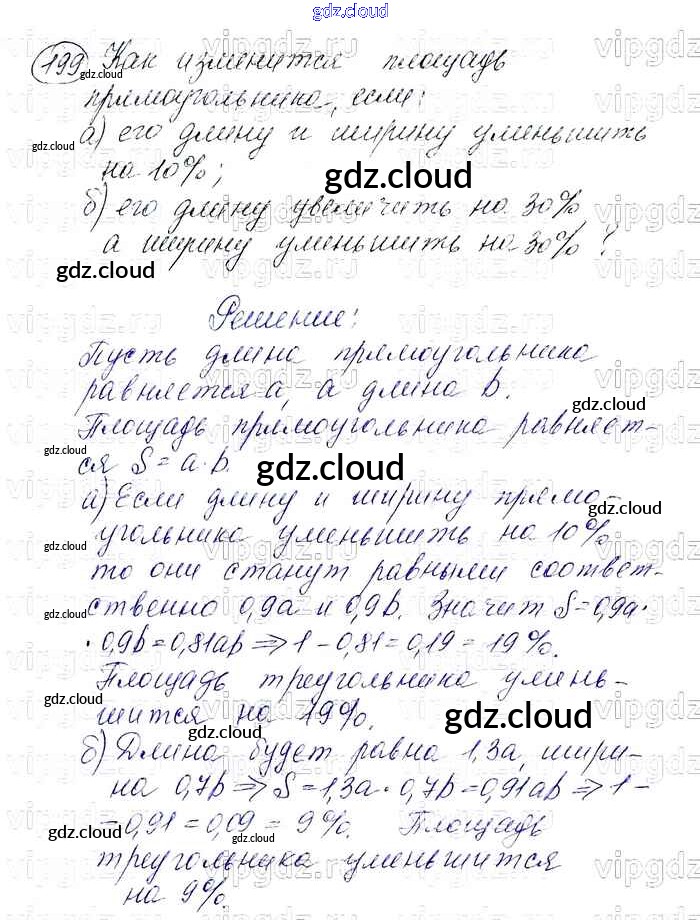 gdz.cloud
199 Как изменится площадь
gdz.cloud
прямоугольника, если:
а) его длину и ширину уменьшить
gdz.cloud
на 10%;
gdz.cloud
б) его длину увеличить на 30%
а ширину уменьшить на 30%?
gdz.cloud
Решение:
Пусть длина прямоугольника
равняется a, а длина b.
gdz.cloud
Площадь прямоугольника равняет-
gdz.cloud
ся S = a·b.
gdz.cloud
а) Если длину и ширину прямо-
gdz.cloud
угольника уменьшить на 10%
gdz.cloud
то они станут равными соответ-
ственно 0,9a и 0,9b. Значит S=0,9a·
gdz.cloud
·0,9b=0,81ab⇒1-0,81=0,19=19%.
Площадь треугольника умень-
gdz.cloud
шится на 19%.
gdz.cloud
gdz.cloud
б) Длина будет равна 1,3a, шири-
на 0,7b⇒S=1,3a·0,7b=0,91ab⇒1-
-0,91=0,09=9%. Площадь
gdz.cloud
gdz.cloud
треугольника уменьшится
на 9%.
gdz.cloud
vipgdz